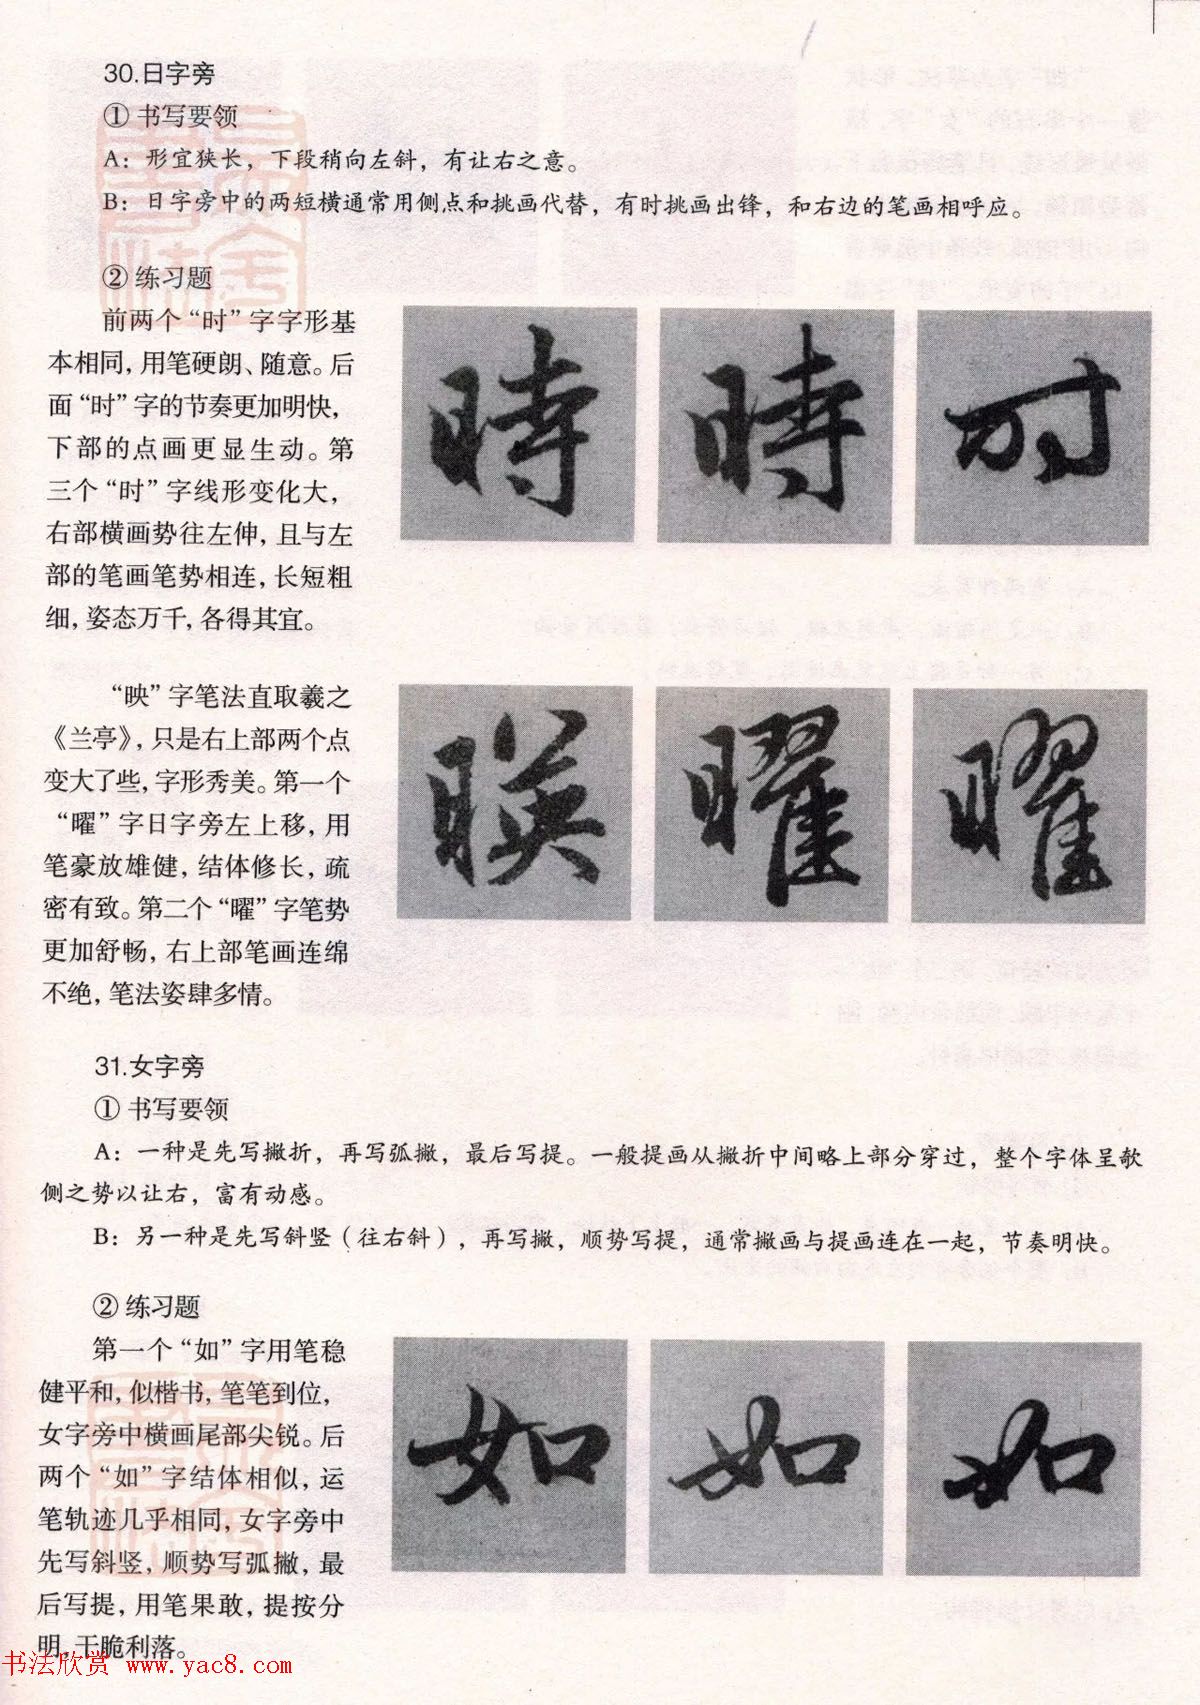 30.日字旁
① 书写要领
A：形宜狭长，下段稍向左斜，有让右之意。
B：日字旁中的两短横通常用侧点和挑画代替，有时挑画出锋，和右边的笔画相呼应。
② 练习题
前两个“时”字字形基
本相同，用笔硬朗、随意。后
面“时”字的节奏更加明快，
下部的点画更显生动。第
三个“时”字线形变化大，
右部横画势往左伸，且与左
部的笔画笔势相连，长短粗
细，姿态万千，各得其宜。
時 時 时
“映”字笔法直取羲之
《兰亭》，只是右上部两个点
变大了些，字形秀美。第一个
“曜”字日字旁左上移，用
笔豪放雄健，结体修长，疏
密有致。第二个“曜”字笔势
更加舒畅，右上部笔画连绵
不绝，笔法姿肆多情。
暎 曜 曜
31.女字旁
① 书写要领
A：一种是先写撇折，再写弧撇，最后写提。一般提画从撇折中间略上部分穿过，整个字体呈欹
侧之势以让右，富有动感。
B：另一种是先写斜竖（往右斜），再写撇，顺势写提，通常撇画与提画连在一起，节奏明快。
② 练习题
第一个“如”字用笔稳
健平和，似楷书，笔笔到位，
女字旁中横画尾部尖锐。后
两个“如”字结体相似，运
笔轨迹几乎相同，女字旁中
先写斜竖，顺势写弧撇，最
后写提，用笔果敢，提按分
明，干脆利落。
如 如 如
书法欣赏 www.yac8.com